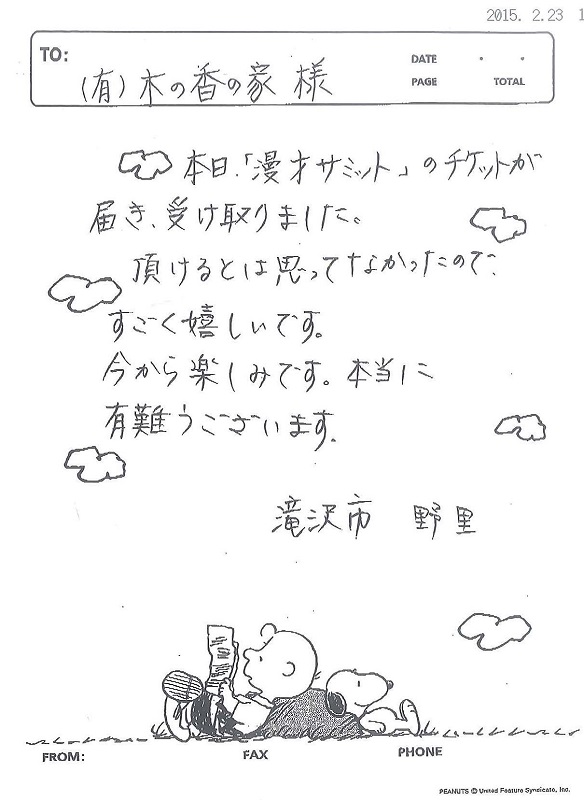 2015. 2.23 1
TO:
(有)木の香の家 様
DATE ・ ・
PAGE TOTAL
本日、「漫才サミット」のチケットが
届き、受け取りました。
頂けるとは思ってなかったので、
すごく嬉しいです。
今から楽しみです。本当に
有難うございます。
滝沢市 野里
FROM: FAX PHONE
PEANUTS © United Feature Syndicate, Inc.